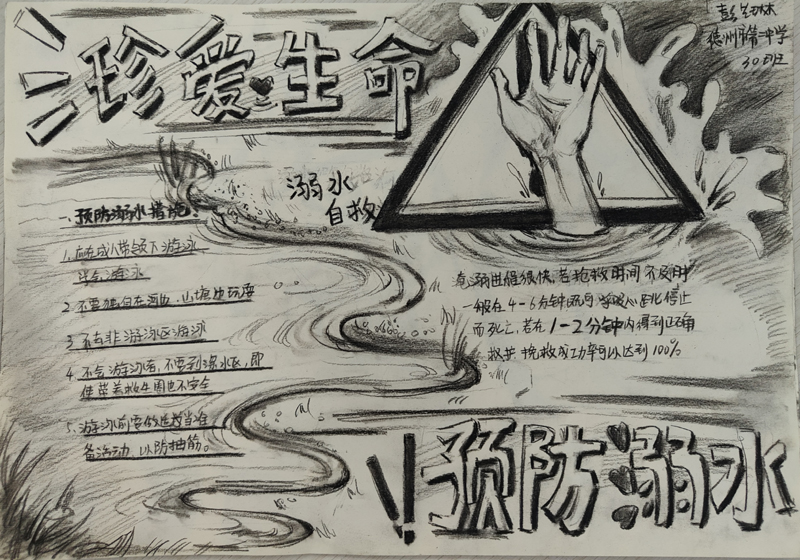 珍爱生命
德州市第一中学
30班
溺水
自救
预防溺水措施:
1. 应在成人带领下游泳
学会游泳
2. 不要独自在河边、山塘边玩耍
3. 不去非游泳区游泳
4. 不会游泳者,不要到深水区,即
使带着救生圈也不安全
5. 游泳前要做适当准
备活动,以防抽筋。
溺进程很快,若抢救时间不及时
一般在4-6分钟即可 心跳停止
而死亡,若在1-2分钟内得到正确
救护 挽救成功率可以达到100%
!预防溺水